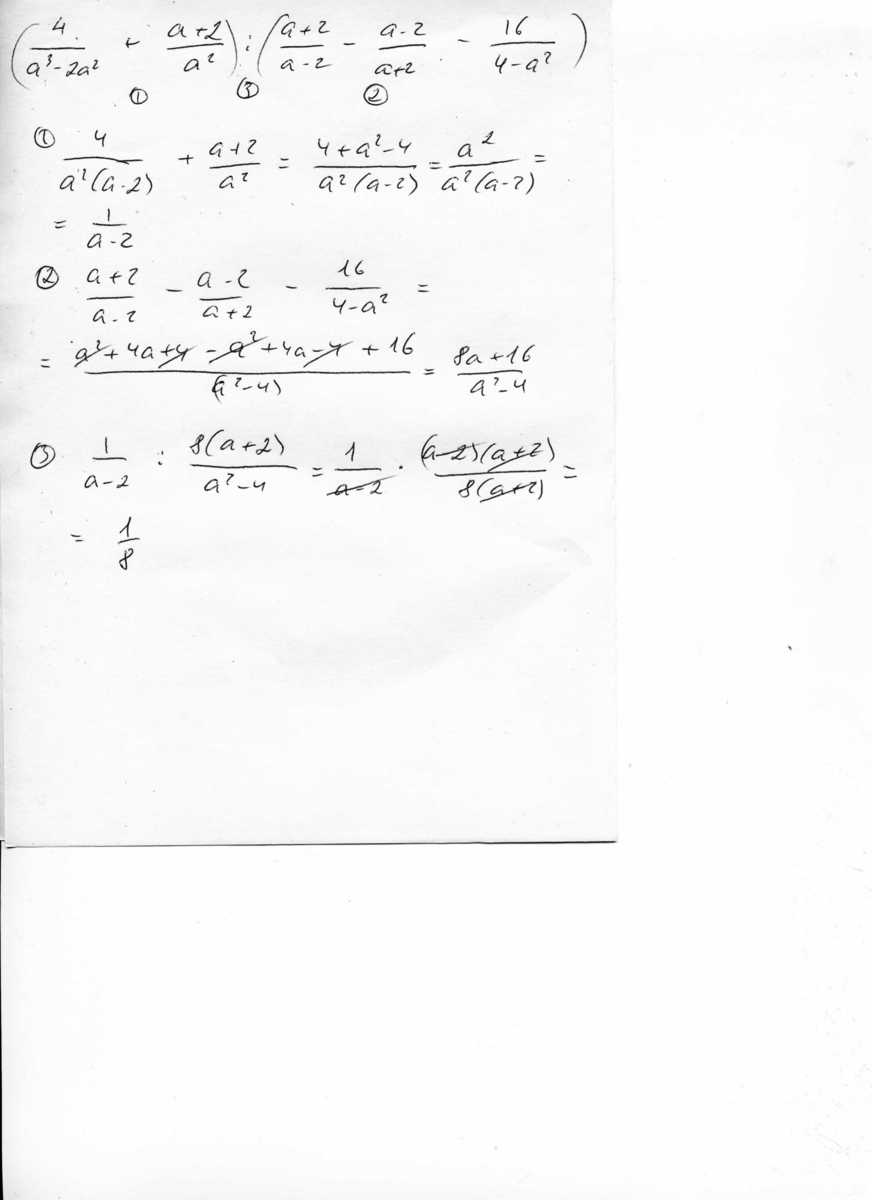 (4/(a³-2a²) + (a+2)/a²) : ((a+2)/(a-2) - (a-2)/(a+2) - 16/(4-a²))
① ③ ②
① 4/(a²(a-2)) + (a+2)/a² = (4+a²-4)/(a²(a-2)) = a²/(a²(a-2)) =
= 1/(a-2)
② (a+2)/(a-2) - (a-2)/(a+2) - 16/(4-a²) =
= (a²+4a+4-a²+4a-4+16)/(a²-4) = (8a+16)/(a²-4)
③ 1/(a-2) : 8(a+2)/(a²-4) = 1/(a-2) · (a-2)(a+2)/(8(a+2)) =
= 1/8